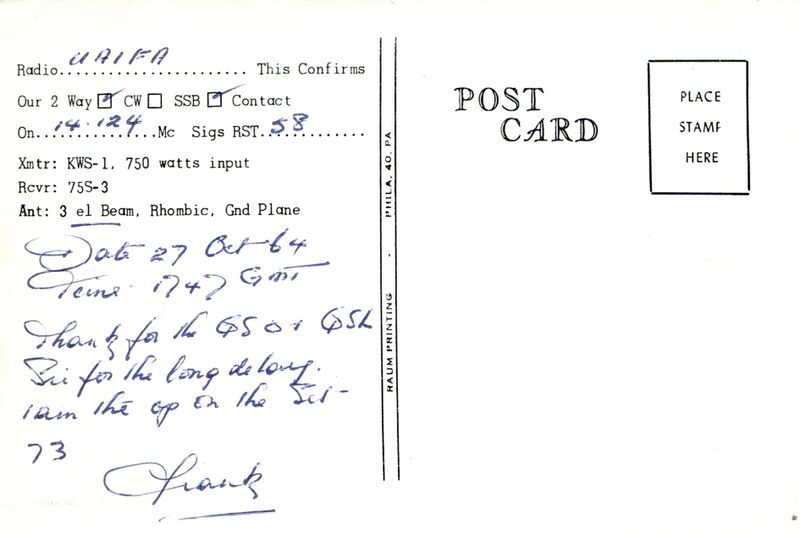 Radio UA1FA This Confirms
Our 2 Way ☑ CW ☐ SSB ☑ Contact
On 14.124 Mc Sigs RST 58
Xmtr: KWS-1, 750 watts input
Rcvr: 75S-3
Ant: 3 el Beam, Rhombic, Gnd Plane
Date 27 Oct 64
Time 1747 GMT
Thank for the QSO & QSL
Sri for the long delay.
I am the op on the
73
Frank
RAUM PRINTING - PHILA. 40, PA
POST
CARD
PLACE
STAMP
HERE